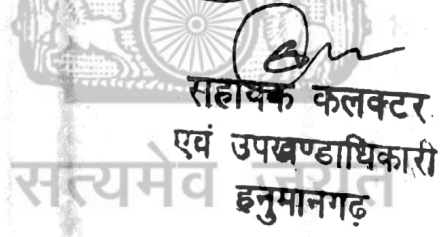 सहायक कलक्टर
एवं उपखण्डाधिकारी
हनुमानगढ़
सत्यमेव जयते